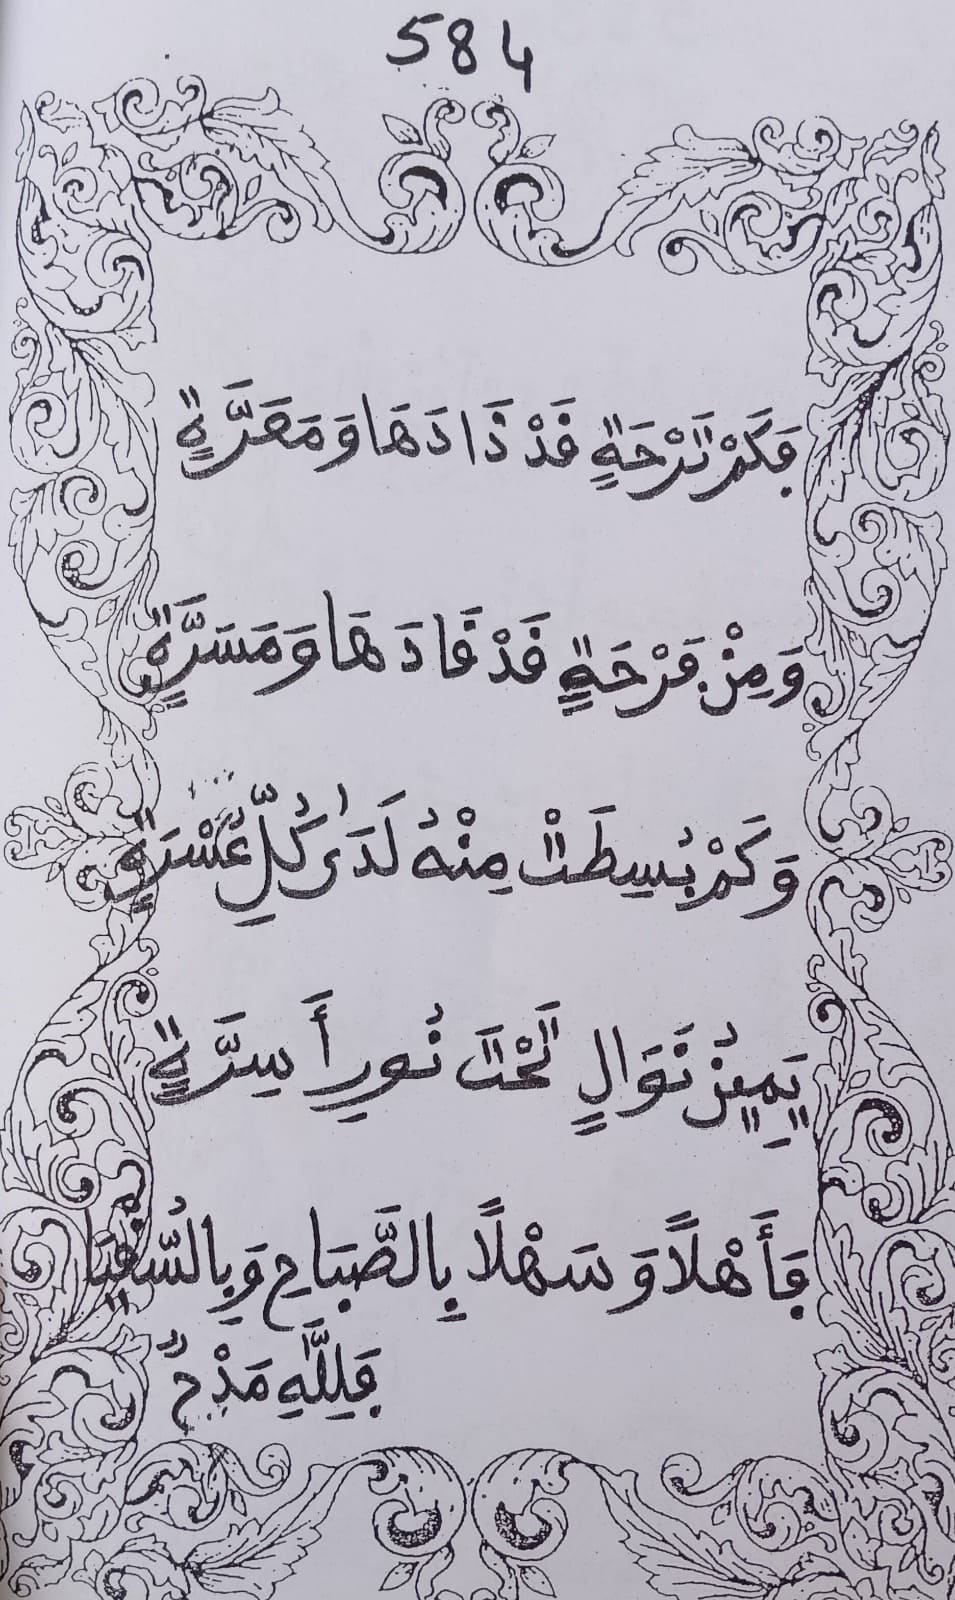 584
فَكَمْ تَرْحَةٍ قَدْ ذَادَهَا وَمَعَرَّةٍ
وَمِنْ فَرْحَةٍ قَدْ قَادَهَا وَمَسَرَّةٍ
وَكَمْ بُسِطَتْ مِنْهُ لَدَىٰ كُلِّ عُسْرَةٍ
يَمِينُ نَوَالٍ تَحْتَ نُورِ أَسِرَّةٍ
فَأَهْلاً وَسَهْلاً بِالصَّبَاحِ وَبِالسُّقْيَا
فَلِلَّهِ مَدْحٌ